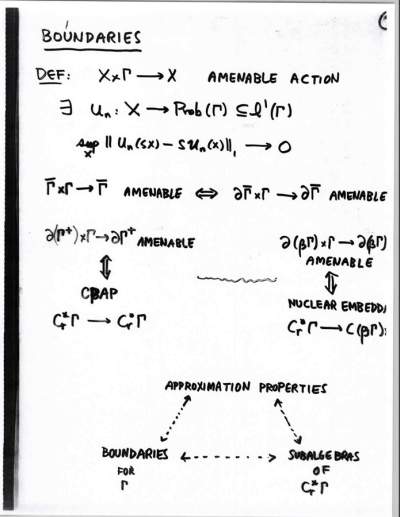 BOUNDARIES
DEF: X×Γ → X AMENABLE ACTION
∃ Uₙ: X → Prob(Γ) ⊆ ℓ'(Γ)
sup ‖ Uₙ(sx) − sUₙ(x)‖₁ → 0
x
Γ̄×Γ → Γ̄ AMENABLE ⟺ ∂Γ̄×Γ → ∂Γ̄ AMENABLE
∂(Γ⁺)×Γ → ∂Γ⁺ AMENABLE
⇕
CBAP
C*ᵣΓ → C*ᵣΓ
∂(βΓ)×Γ → ∂(βΓ)
AMENABLE
⇕
NUCLEAR EMBEDD
C*ᵣΓ → C(βΓ)
APPROXIMATION PROPERTIES
BOUNDARIES
FOR
Γ
SUBALGEBRAS
OF
C*ᵣΓ